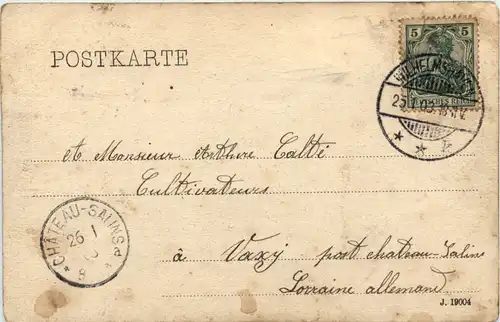 POSTKARTE
5 5
DEUTSCHES REICH
WILHELMSHAVEN
25.1.
* * k
at Monsieur Arthur Calti
Cultivateurs
à Vaxy post chateau-Salins
Lorraine allemand
CHÂTEAU-SALINS
26 1
8
J. 19004